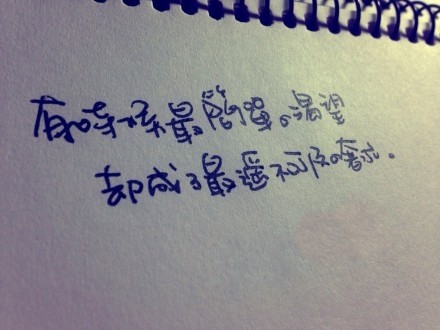 有时候最简单的渴望
却成了最遥不可及的奢求。